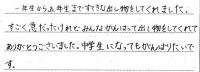 一年生から五年生まですてきな出し物をしてくれました。
すごく急だったけれどみんながんばって出し物をしてくれて
ありがとうございました。中学生になってもがんばりたいで
す。